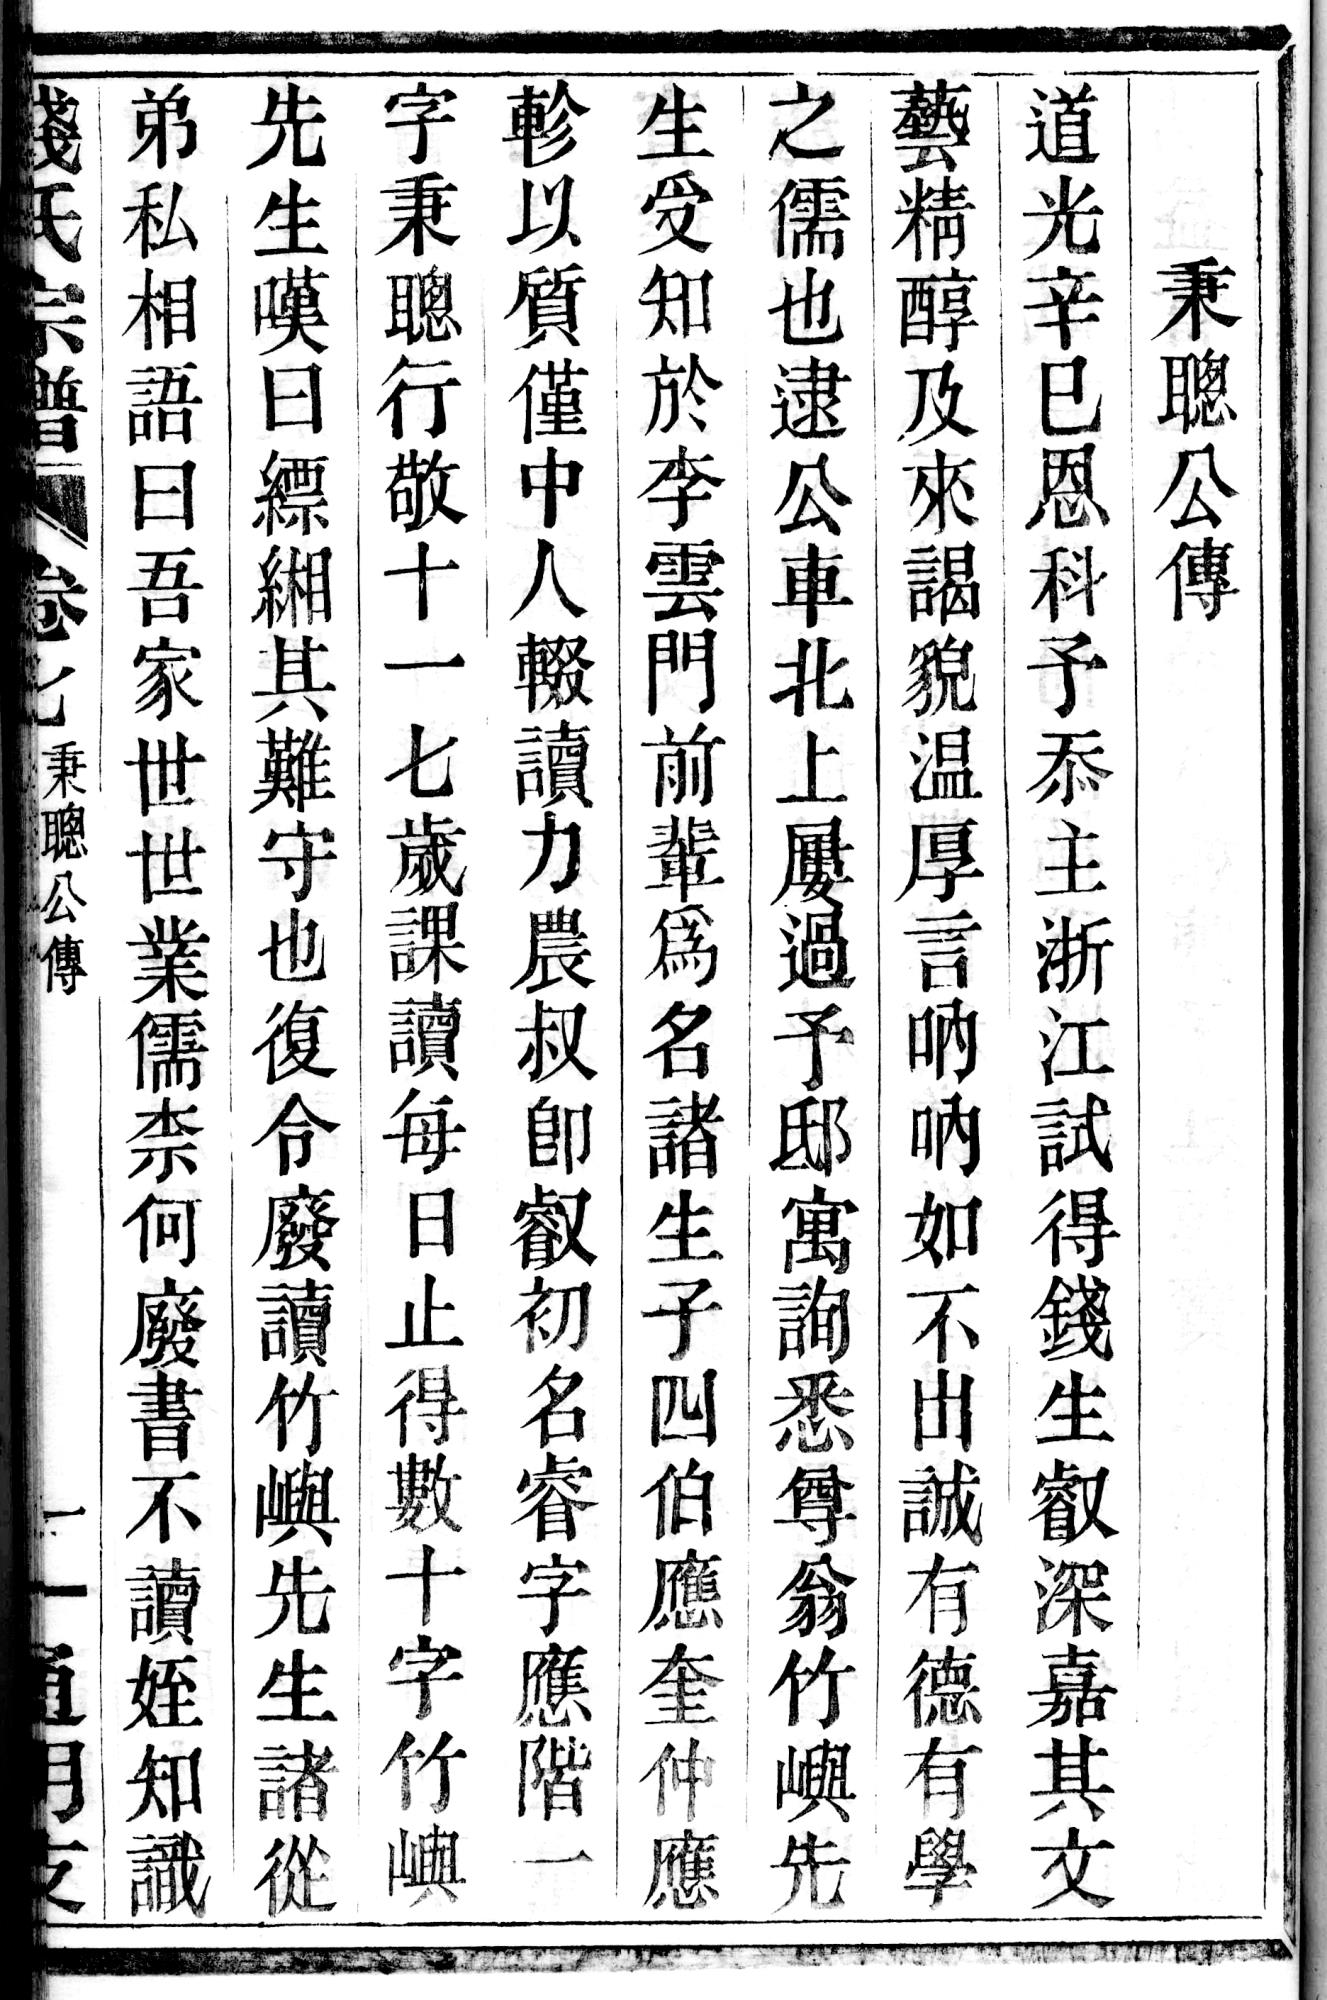 秉聰公傳
道光辛巳恩科予忝主浙江試得錢生叡深嘉其文
藝精醇及來謁貌温厚言吶吶如不出誠有德有學
之儒也逮公車北上屢過予邸寓詢悉尊翁竹嶼先
生受知於李雲門前輩爲名諸生子四伯應奎仲應
軫以質僅中人輟讀力農叔卽叡初名睿字應階一
字秉聰行敬十一七歲課讀每日止得數十字竹嶼
先生嘆曰縹緗其難守也復令廢讀竹嶼先生諸從
弟私相語曰吾家世世業儒柰何廢書不讀姪知識
錢氏宗譜 卷七 秉聰公傳 一 通明支